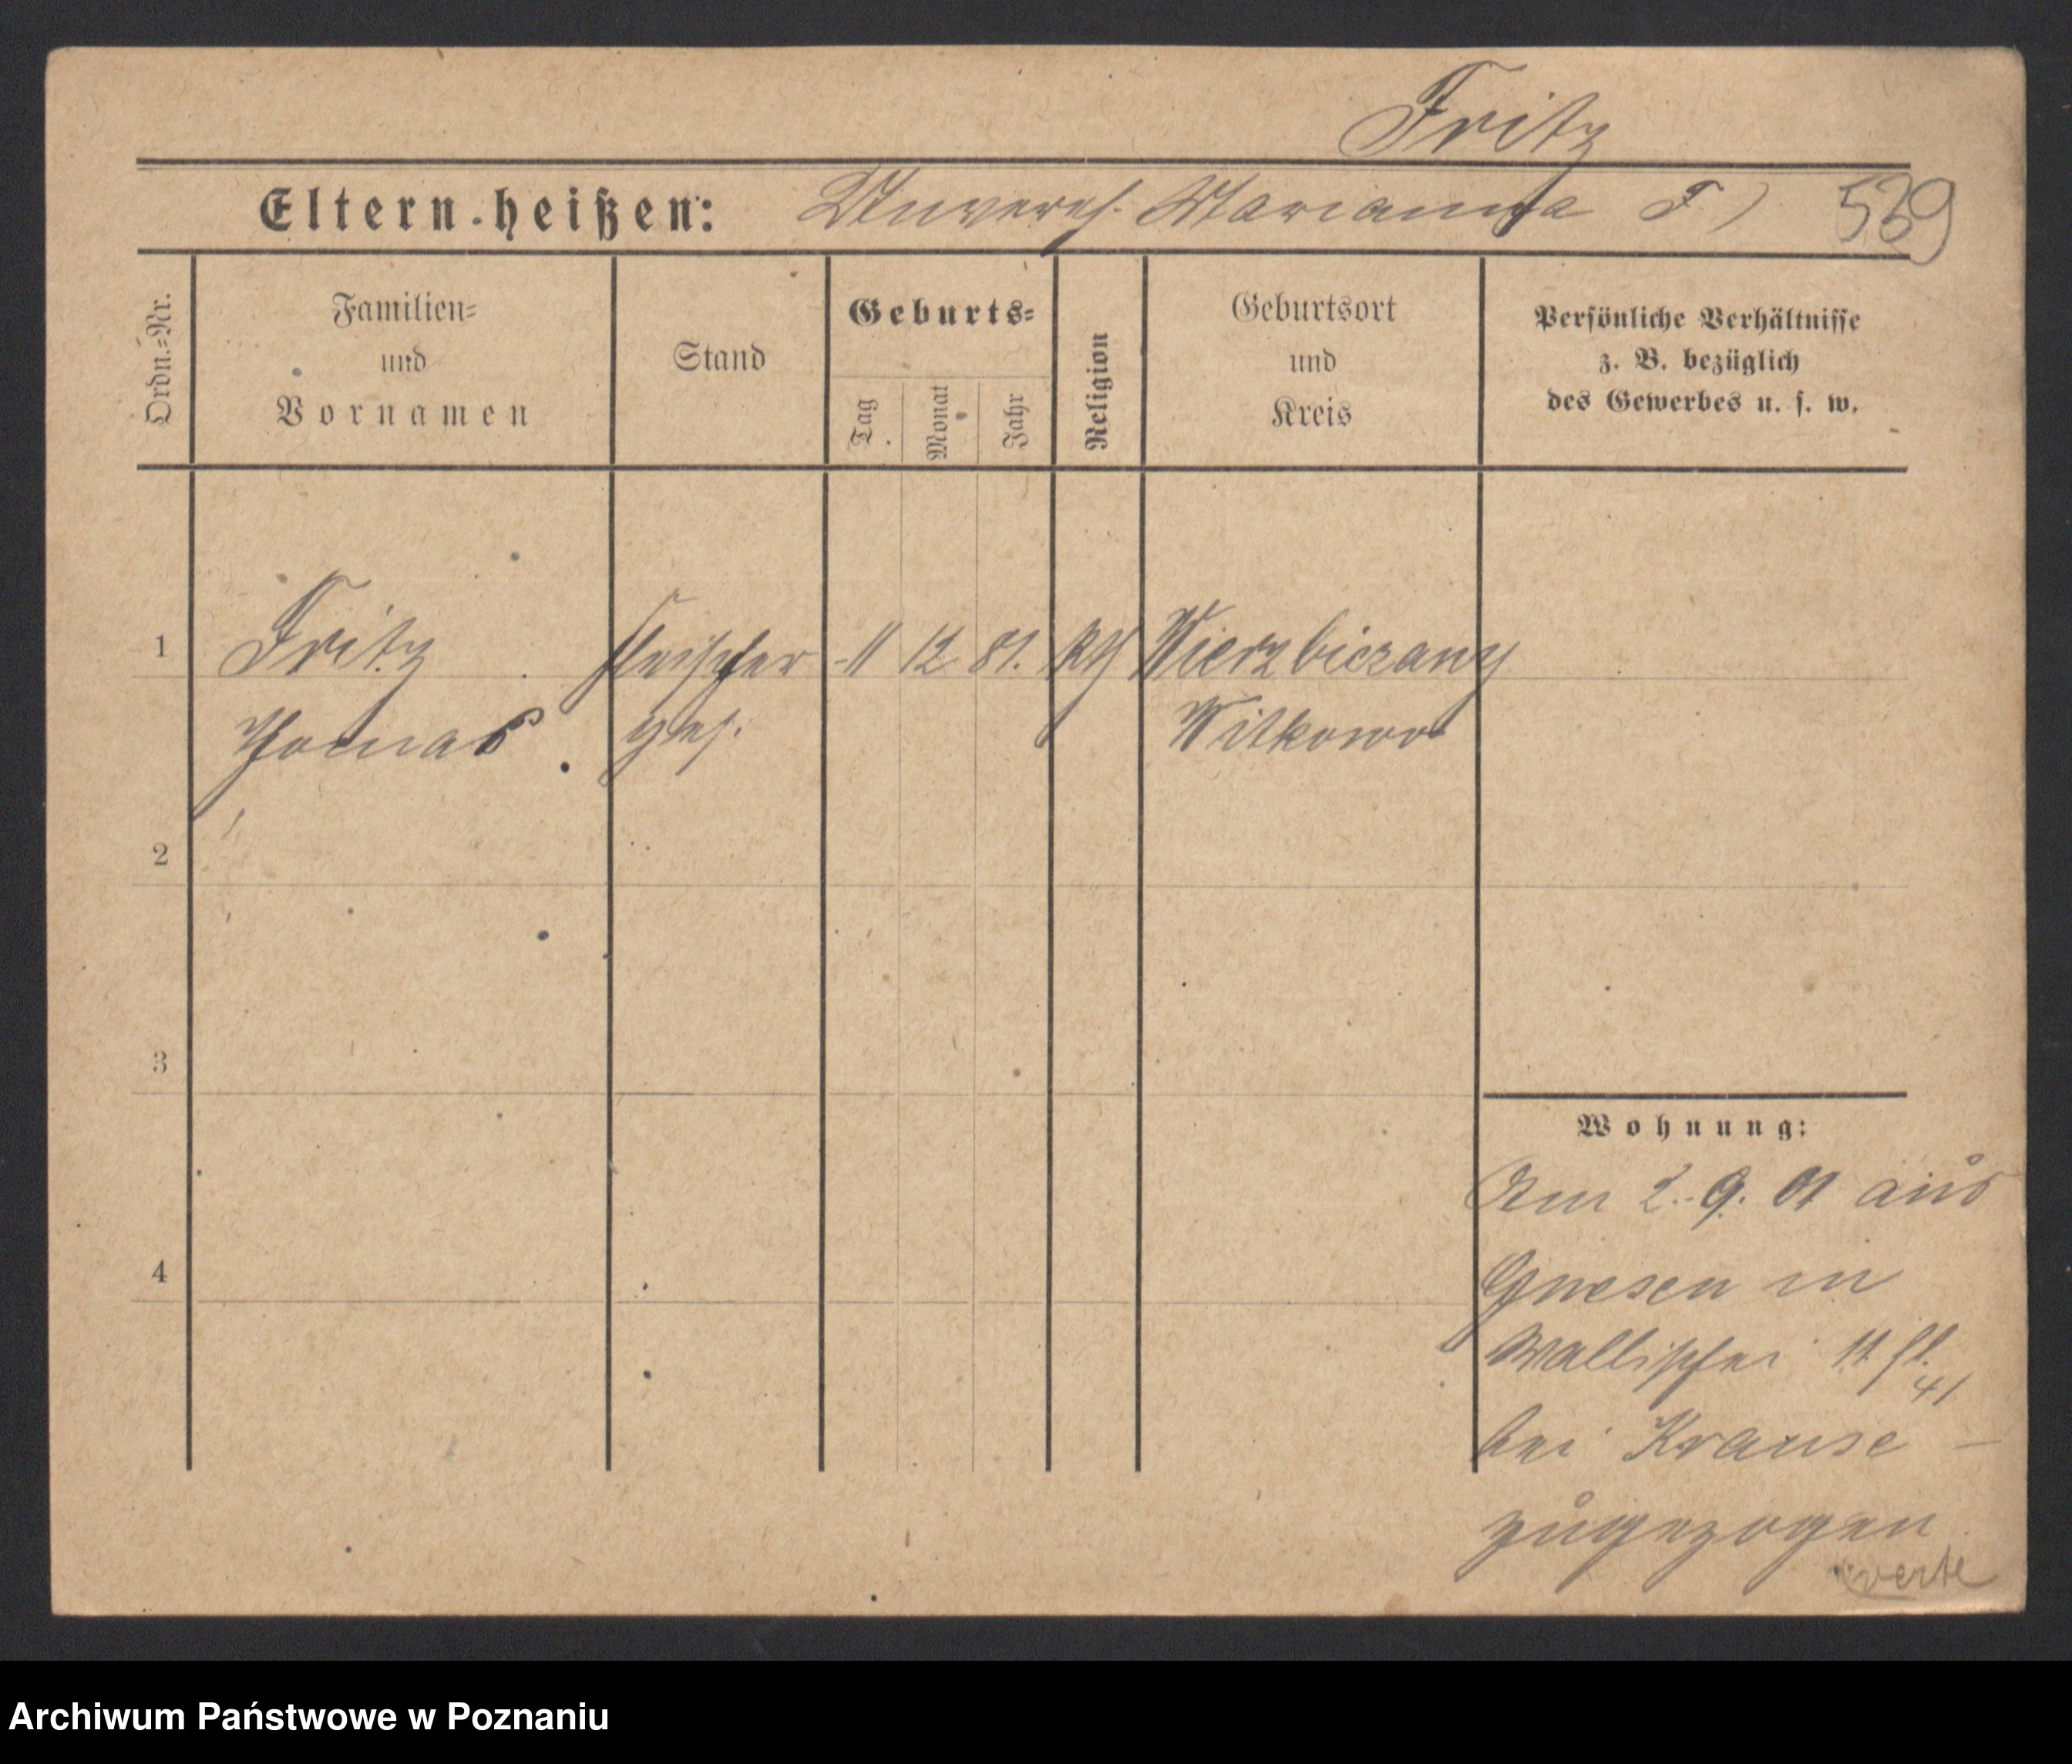 Fritz
Eltern heißen: Unverehl. Marianna F) 539
Ordn.=Nr.
Familien=
und
Vornamen
Stand
Geburts=
Tag
Monat
Jahr
Religion
Geburtsort
und
Kreis
Persönliche Verhältnisse
z. B. bezüglich
des Gewerbes u. s. w.
1 Fritz Fleischer 11 12 81. kth Wierzbiczany
Thomas ges. Witkowo
2
3
4
Wohnung:
Am 2. 9. 01 aus
Gnesen in
Wallischei
41
bei Krause –
zugezogen
verte
Archiwum Państwowe w Poznaniu